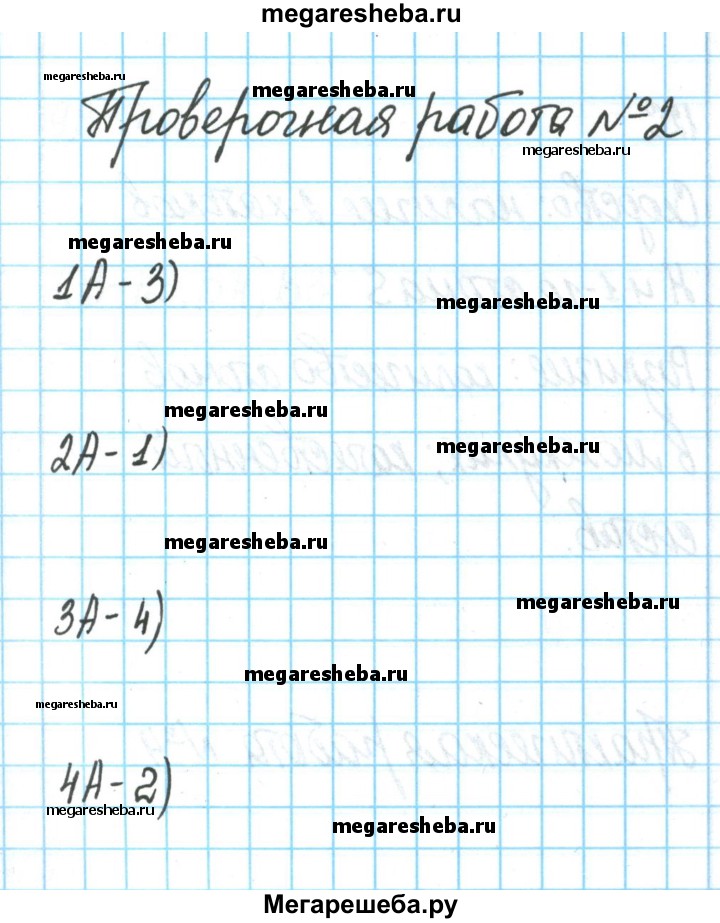 megaresheba.ru
megaresheba.ru
megaresheba.ru
Проверочная работа №2
megaresheba.ru
megaresheba.ru
1А - 3)
megaresheba.ru
megaresheba.ru
megaresheba.ru
2А - 1)
megaresheba.ru
megaresheba.ru
3А - 4)
megaresheba.ru
megaresheba.ru
4А - 2)
megaresheba.ru
megaresheba.ru
Мегарешеба.ру